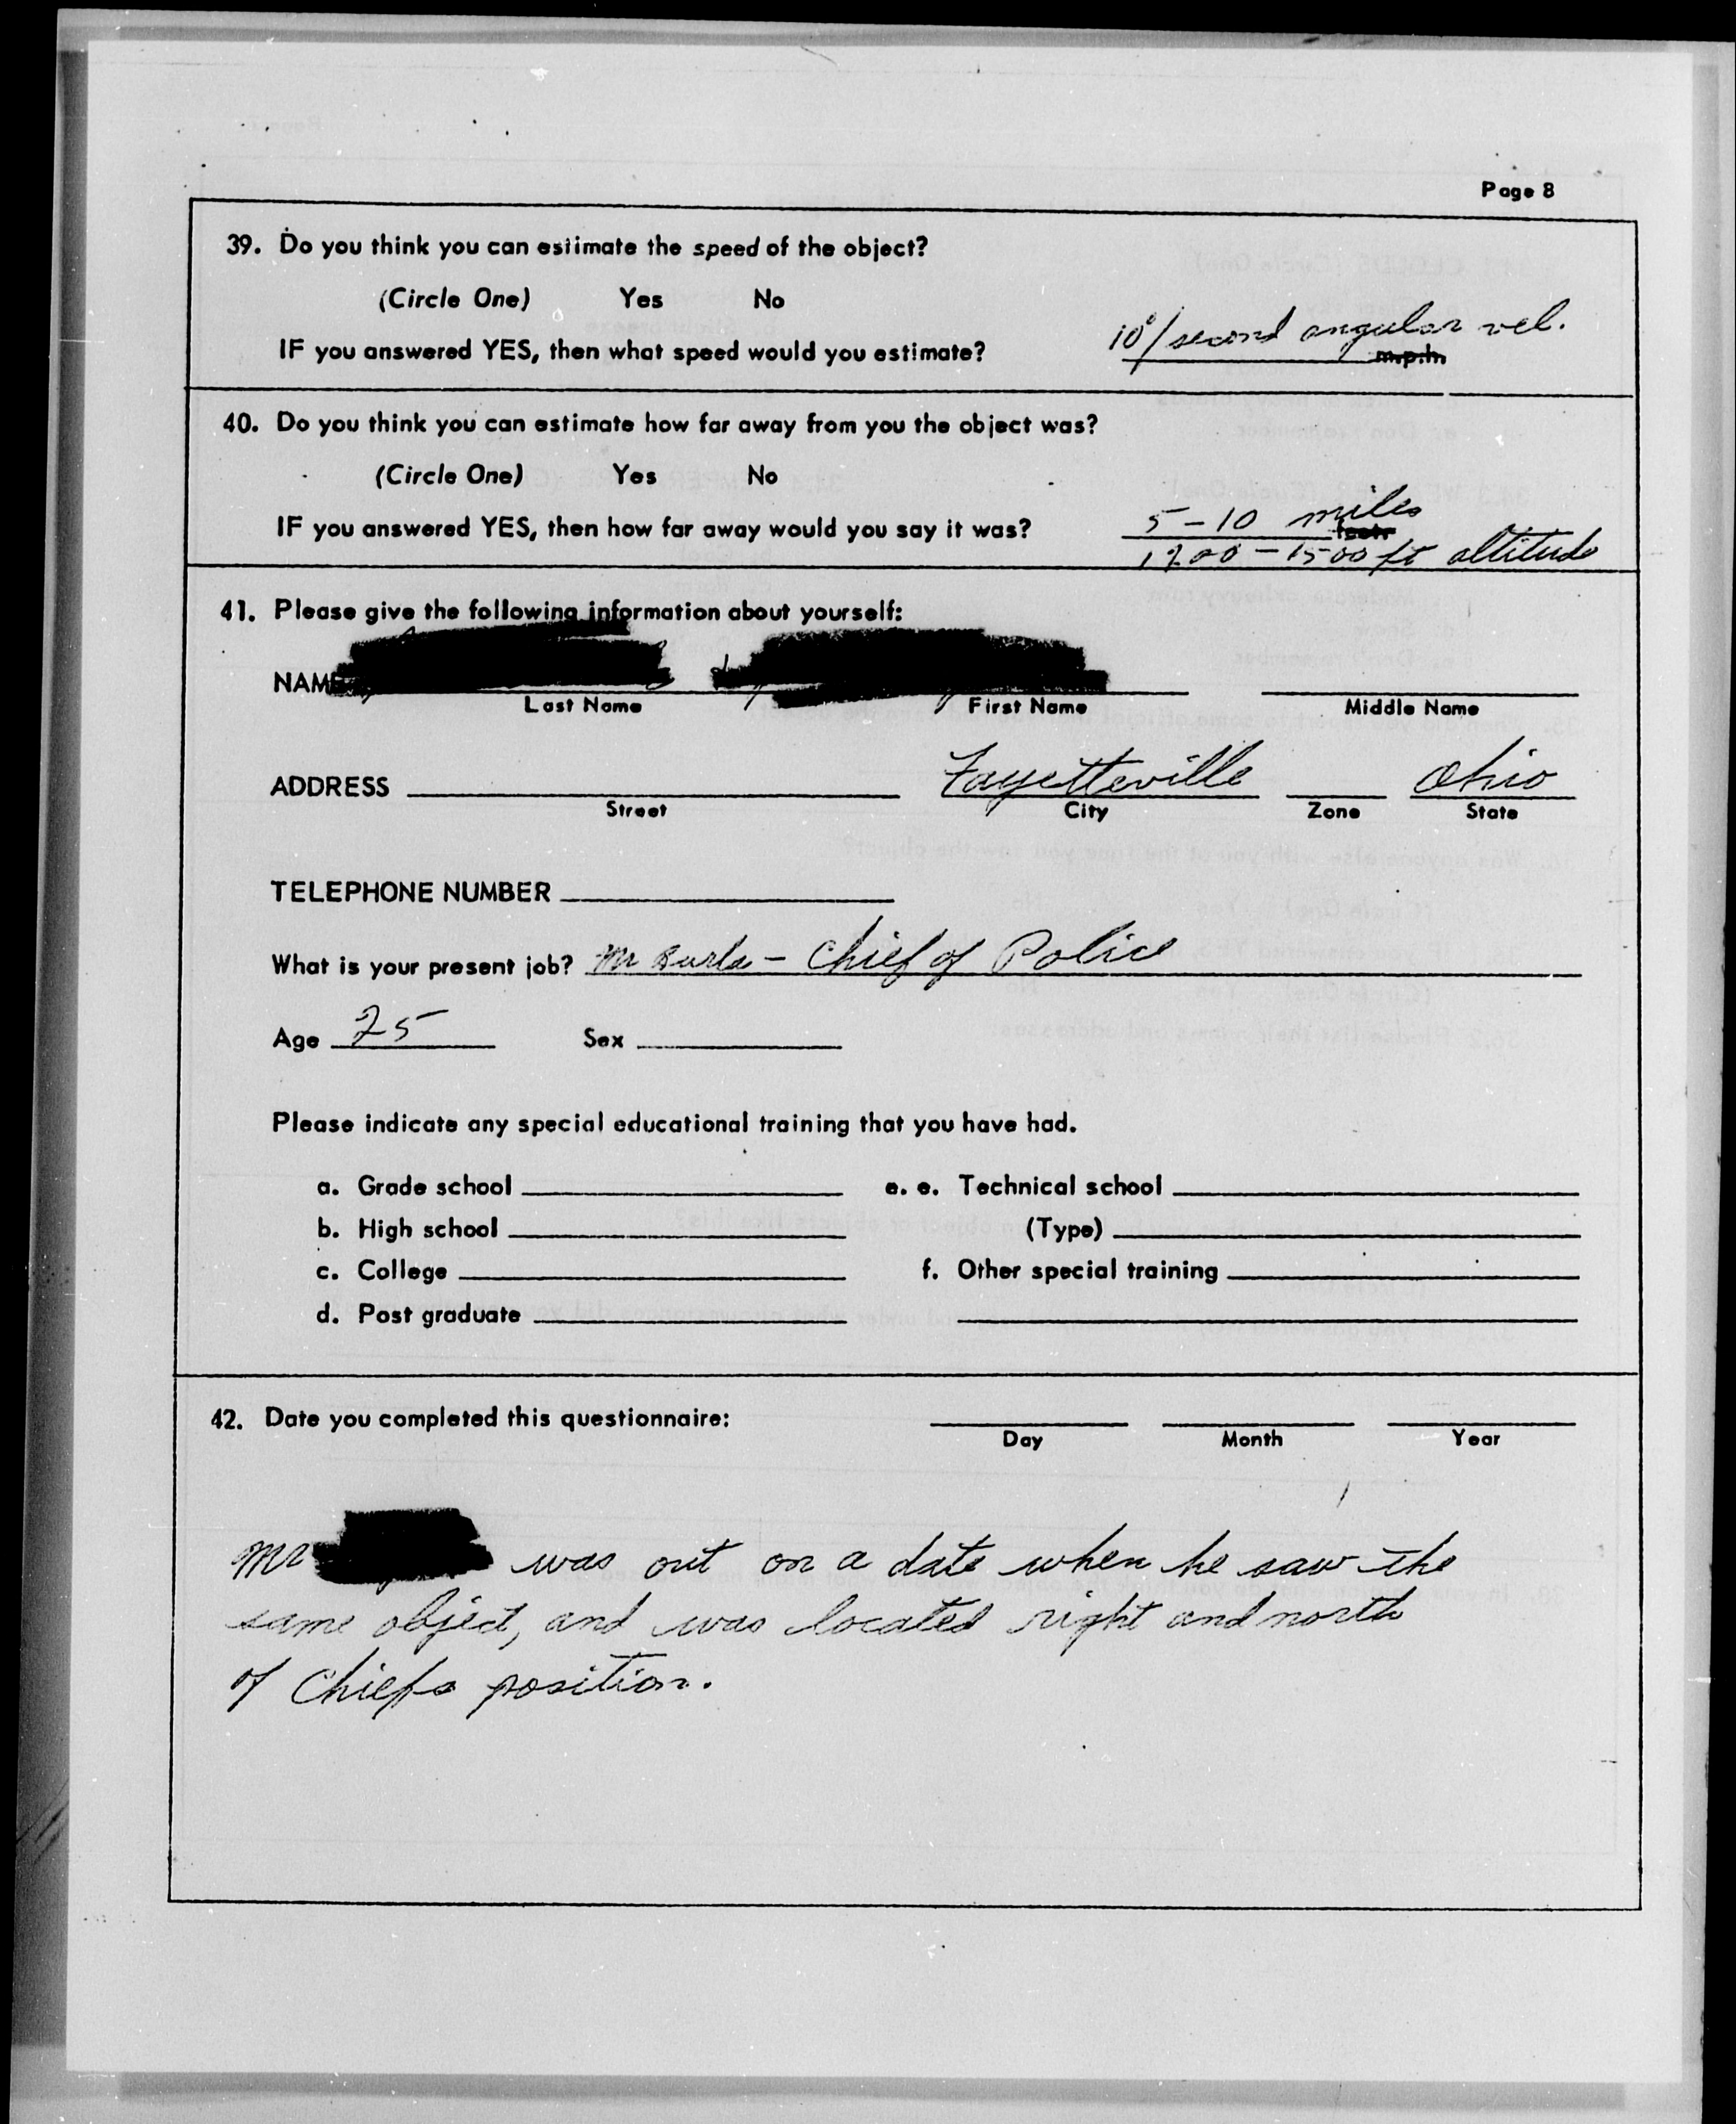 Page 8
39. Do you think you can estimate the speed of the object?
(Circle One) Yes No
10°/second angular vel.
IF you answered YES, then what speed would you estimate? m.p.h.
40. Do you think you can estimate how far away from you the object was?
(Circle One) Yes No
5-10 miles
IF you answered YES, then how far away would you say it was? feet.
1200-1500 ft altitude
41. Please give the following information about yourself:
NAME
Last Name First Name Middle Name
ADDRESS Fayetteville Ohio
Street City Zone State
TELEPHONE NUMBER
What is your present job? Mr - Chief of Police
Age 25 Sex
Please indicate any special educational training that you have had.
a. Grade school e. e. Technical school
b. High school (Type)
c. College f. Other special training
d. Post graduate
42. Date you completed this questionnaire:
Day Month Year
Mr was out on a date when he saw the
same object, and was located right and north
of Chiefs position.